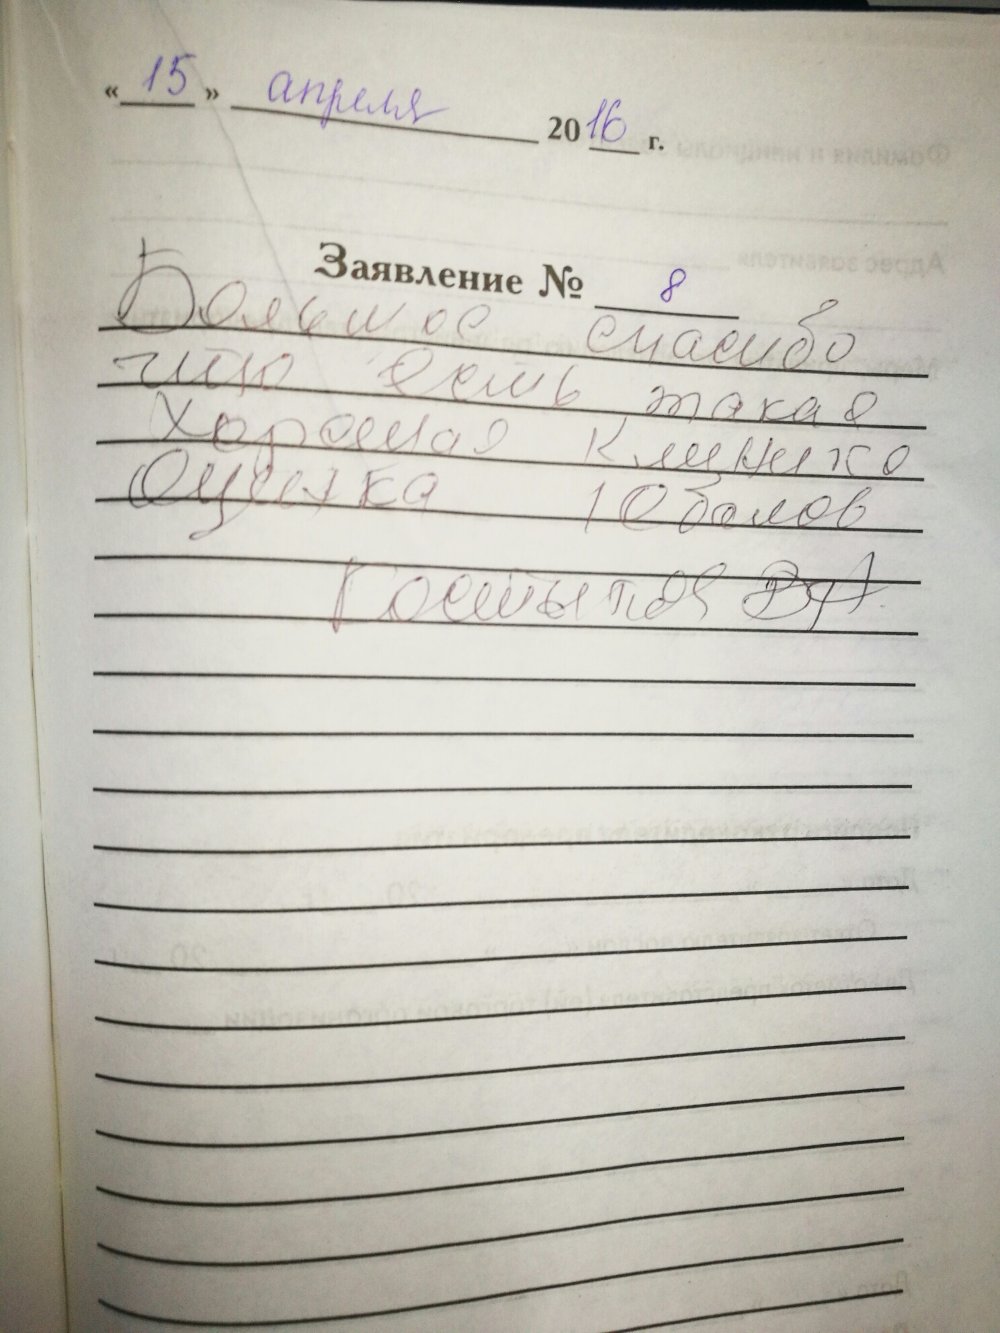 « 15 » апреля 2016 г.
Заявление № 8
Большое спасибо
что есть такая
хорошая клиника
Оценка 10 балов